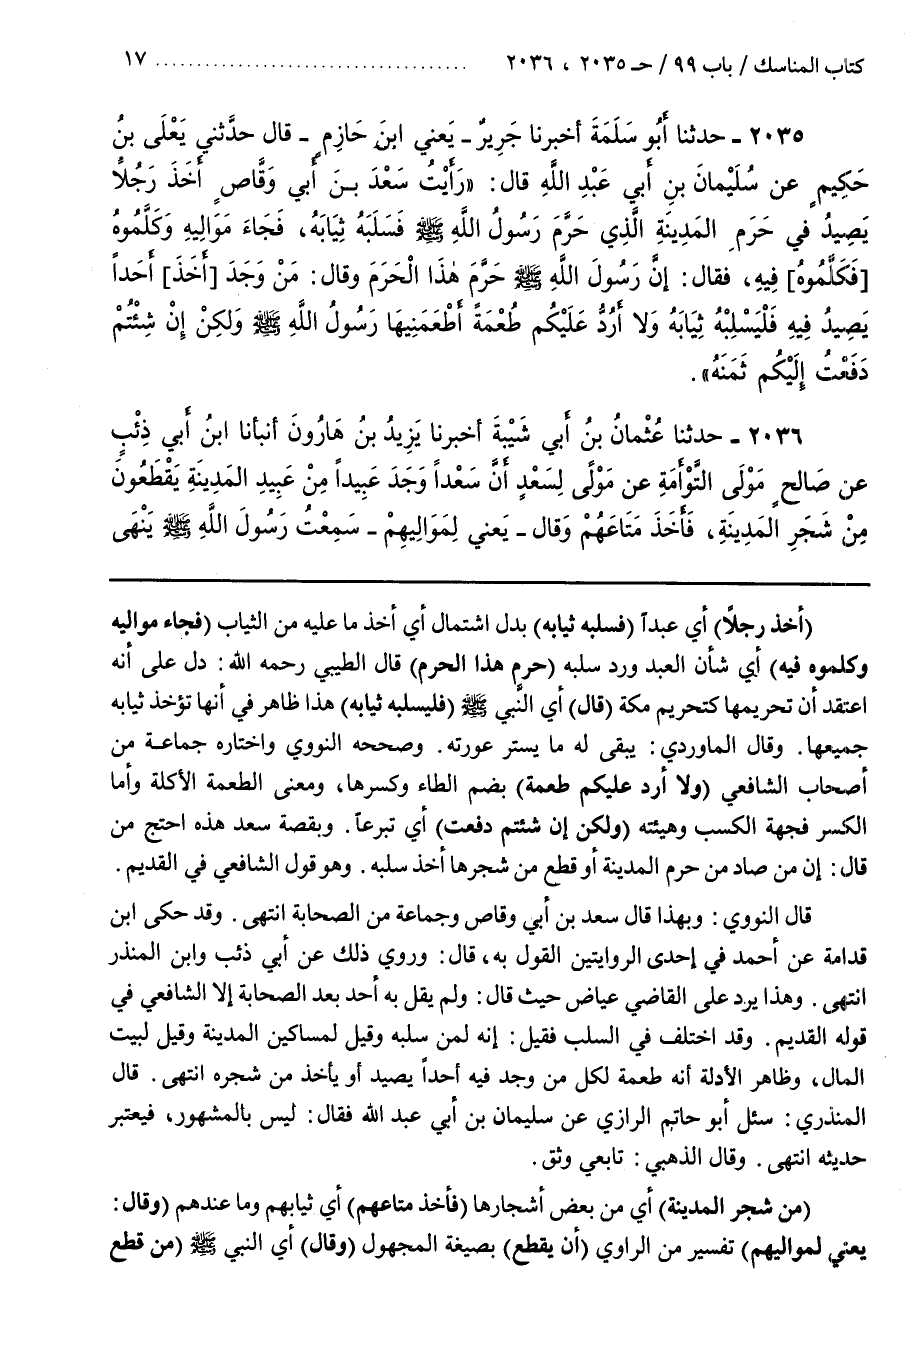 كتاب المناسك / باب ٩٩ / حـ ٢٠٣٥ ، ٢٠٣٦ ..................................... ١٧
٢٠٣٥ ـ حدثنا أَبُو سَلَمَةَ أخبرنا جَرِيرٌ ـ يَعني ابنَ حَازِمٍ ـ قال حدَّثني يَعْلَى بنُ
حَكِيمٍ عن سُلَيْمانَ بنِ أَبي عَبْدِ اللَّهِ قال: «رَأَيْتُ سَعْدَ بـنَ أبي وَقَّاصٍ أَخَذَ رَجُلًا
يَصِيدُ في حَرَمِ المَدِينَةِ الَّذِي حَرَّمَ رَسُولُ اللَّهِ ﷺ فَسَلَبَهُ ثِيَابَهُ، فَجَاءَ مَوَالِيهِ وَكَلَّمُوهُ
[فَكَلَّمُوهُ] فِيهِ، فقال: إنَّ رَسُولَ اللَّهِ ﷺ حَرَّمَ هٰذَا الْحَرَمَ وقال: مَنْ وَجَدَ [أَخَذَ] أَحَداً
يَصِيدُ فِيهِ فَلْيَسْلِبْهُ ثِيَابَهُ وَلا أَرُدُّ عَلَيْكُم طُعْمَةً أَطْعَمَنِيهَا رَسُولُ اللَّهِ ﷺ وَلكِنْ إنْ شِئْتُمْ
دَفَعْتُ إِلَيْكُم ثَمَنَهُ».
٢٠٣٦ ـ حدثنا عُثْمانُ بنُ أَبي شَيْبَةَ أخبرنا يَزِيدُ بنُ هَارُونَ أنبأنا ابنُ أَبي ذِئْبٍ
عن صَالحٍ مَوْلَى التَّوْأَمَةِ عن مَوْلًى لِسَعْدٍ أنَّ سَعْداً وَجَدَ عَبِيداً مِنْ عَبِيدِ المَدِينَةِ يَقْطَعُونَ
مِنْ شَجَرِ المَدِينَةِ، فَأَخَذَ مَتَاعَهُمْ وَقال ـ يَعني لِمَوَالِيهِمْ ـ سَمِعْتُ رَسُولَ اللَّهِ ﷺ يَنْهَى
(أخذ رجلًا) أي عبداً (فسلبه ثيابه) بدل اشتمال أي أخذ ما عليه من الثياب (فجاء مواليه
وكلموه فيه) أي شأن العبد ورد سلبه (حرم هذا الحرم) قال الطيبي رحمه الله: دل على أنه
اعتقد أن تحريمها كتحريم مكة (قال) أي النَّبي ﷺ (فليسلبه ثيابه) هذا ظاهر في أنها تؤخذ ثيابه
جميعها. وقال الماوردي: يبقى له ما يستر عورته. وصححه النووي واختاره جماعة من
أصحاب الشافعي (ولا أرد عليكم طعمة) بضم الطاء وكسرها، ومعنى الطعمة الأكلة وأما
الكسر فجهة الكسب وهيئته (ولكن إن شئتم دفعت) أي تبرعاً. وبقصة سعد هذه احتج من
قال: إن من صاد من حرم المدينة أو قطع من شجرها أخذ سلبه. وهو قول الشافعي في القديم.
قال النووي: وبهذا قال سعد بن أبي وقاص وجماعة من الصحابة انتهى. وقد حكى ابن
قدامة عن أحمد في إحدى الروايتين القول به، قال: وروي ذلك عن أبي ذئب وابن المنذر
انتهى. وهذا يرد على القاضي عياض حيث قال: ولم يقل به أحد بعد الصحابة إلا الشافعي في
قوله القديم. وقد اختلف في السلب فقيل: إنه لمن سلبه وقيل لمساكين المدينة وقيل لبيت
المال، وظاهر الأدلة أنه طعمة لكل من وجد فيه أحداً يصيد أو يأخذ من شجره انتهى. قال
المنذري: سئل أبو حاتم الرازي عن سليمان بن أبي عبد الله فقال: ليس بالمشهور، فيعتبر
حديثه انتهى. وقال الذهبي: تابعي وثق.
(من شجر المدينة) أي من بعض أشجارها (فأخذ متاعهم) أي ثيابهم وما عندهم (وقال:
يعني لمواليهم) تفسير من الراوي (أن يقطع) بصيغة المجهول (وقال) أي النبي ﷺ (من قطع